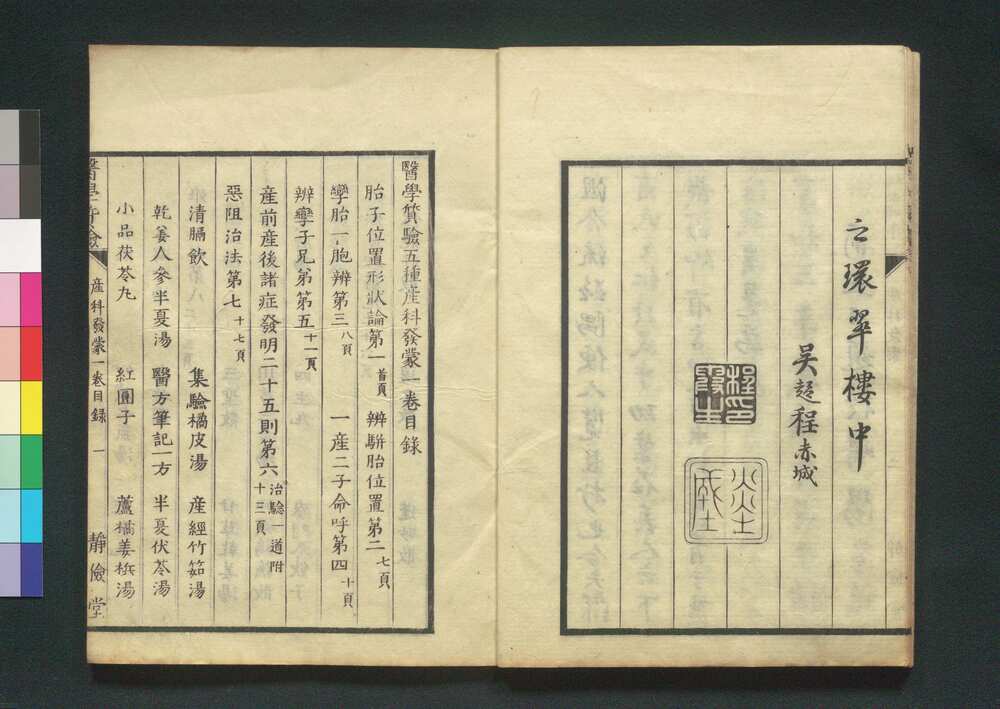 之環翠樓中
吴趍程赤城
程印
赤城
醫學質驗五種産科發蒙一卷目錄
胎子位置形狀論第一首頁 辨駢胎位置第二七頁
孿胎一胞辨第三八頁 一産二子命呼第四十頁
辨孿子兄弟第五十一頁
産前産後諸症發明二十五則第六治驗一道附十三頁
惡阻治法第七十七頁
清膈飲 集驗橘皮湯 産經竹筎湯
乾姜人參半夏湯 醫方筆記一方 半夏茯苓湯
小品茯苓丸 紅圓子 蘆橘姜梹湯
産科發蒙一卷目錄 一 靜儉堂